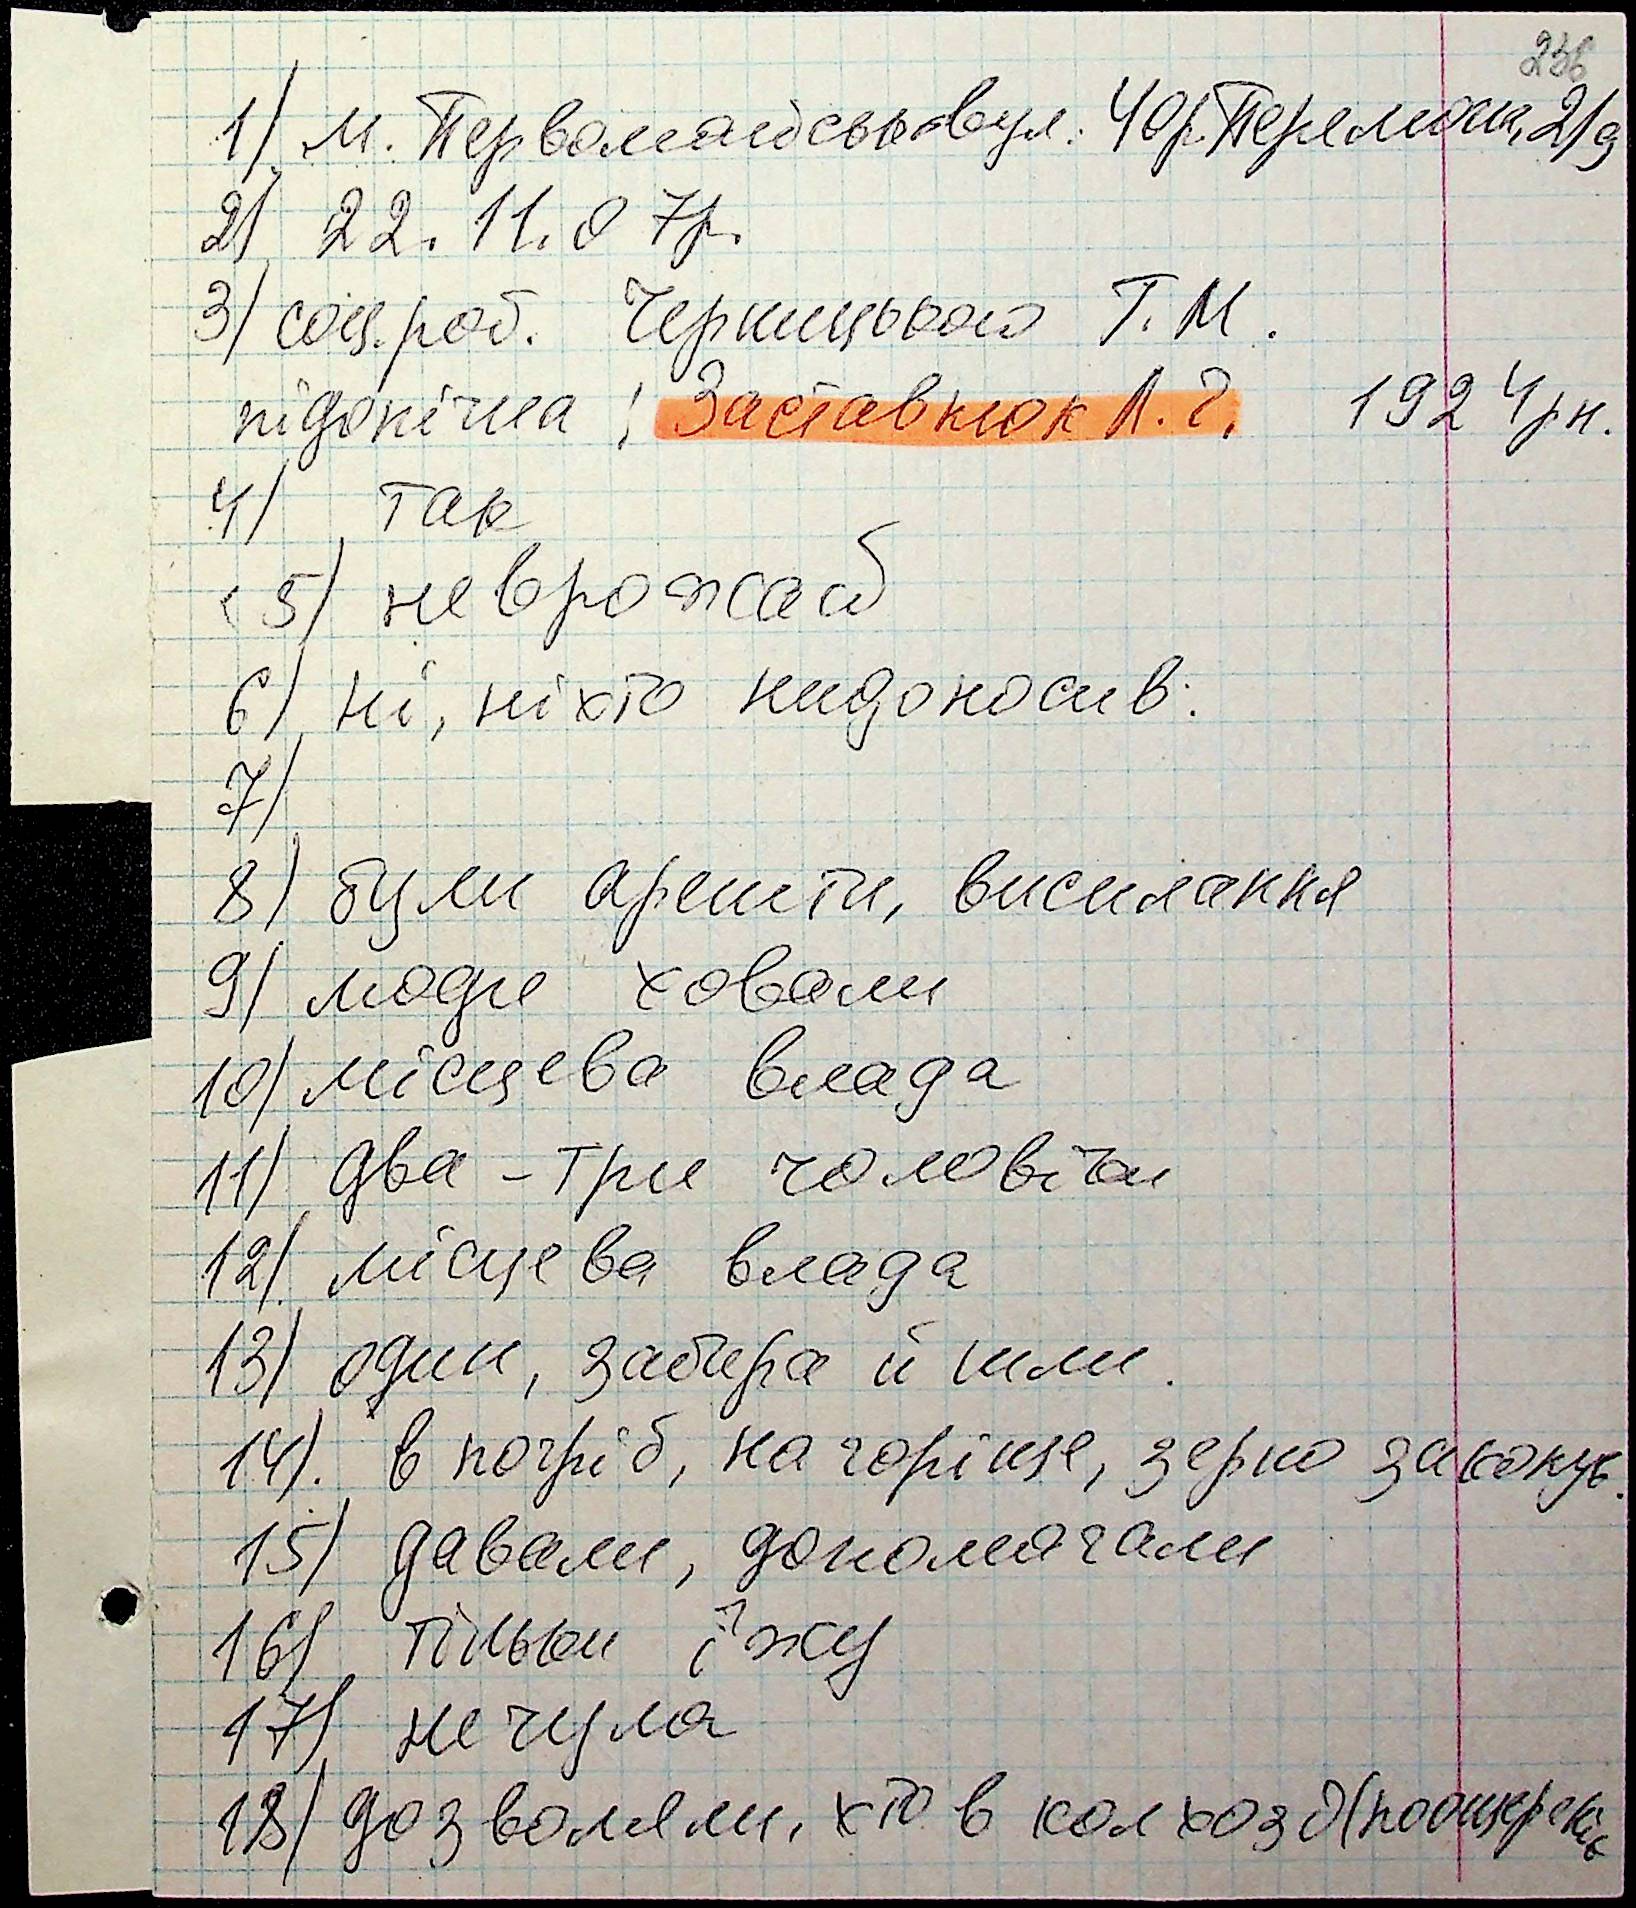 236
1) м. Первомайськ вул. Чор. Перемоги, 2/9
2) 22.11.07р.
3) соц.роб. Черницькою Т.М.
підопічна: Заставнюк Л.Г. 1924рн.
4) так
5) неврожай
6) ні, ніхто нидоносив.
7)
8) були арешти, висилання
9) люде ховали
10) місцева влада
11) два - три чоловіки
12) місцева влада
13) один, забира й шли.
14). в погріб, на горіще, зерно закопув.
15) давали, допомагали
16) тільки їжу
17) не чула
18) дозволяли, хто в колхозі